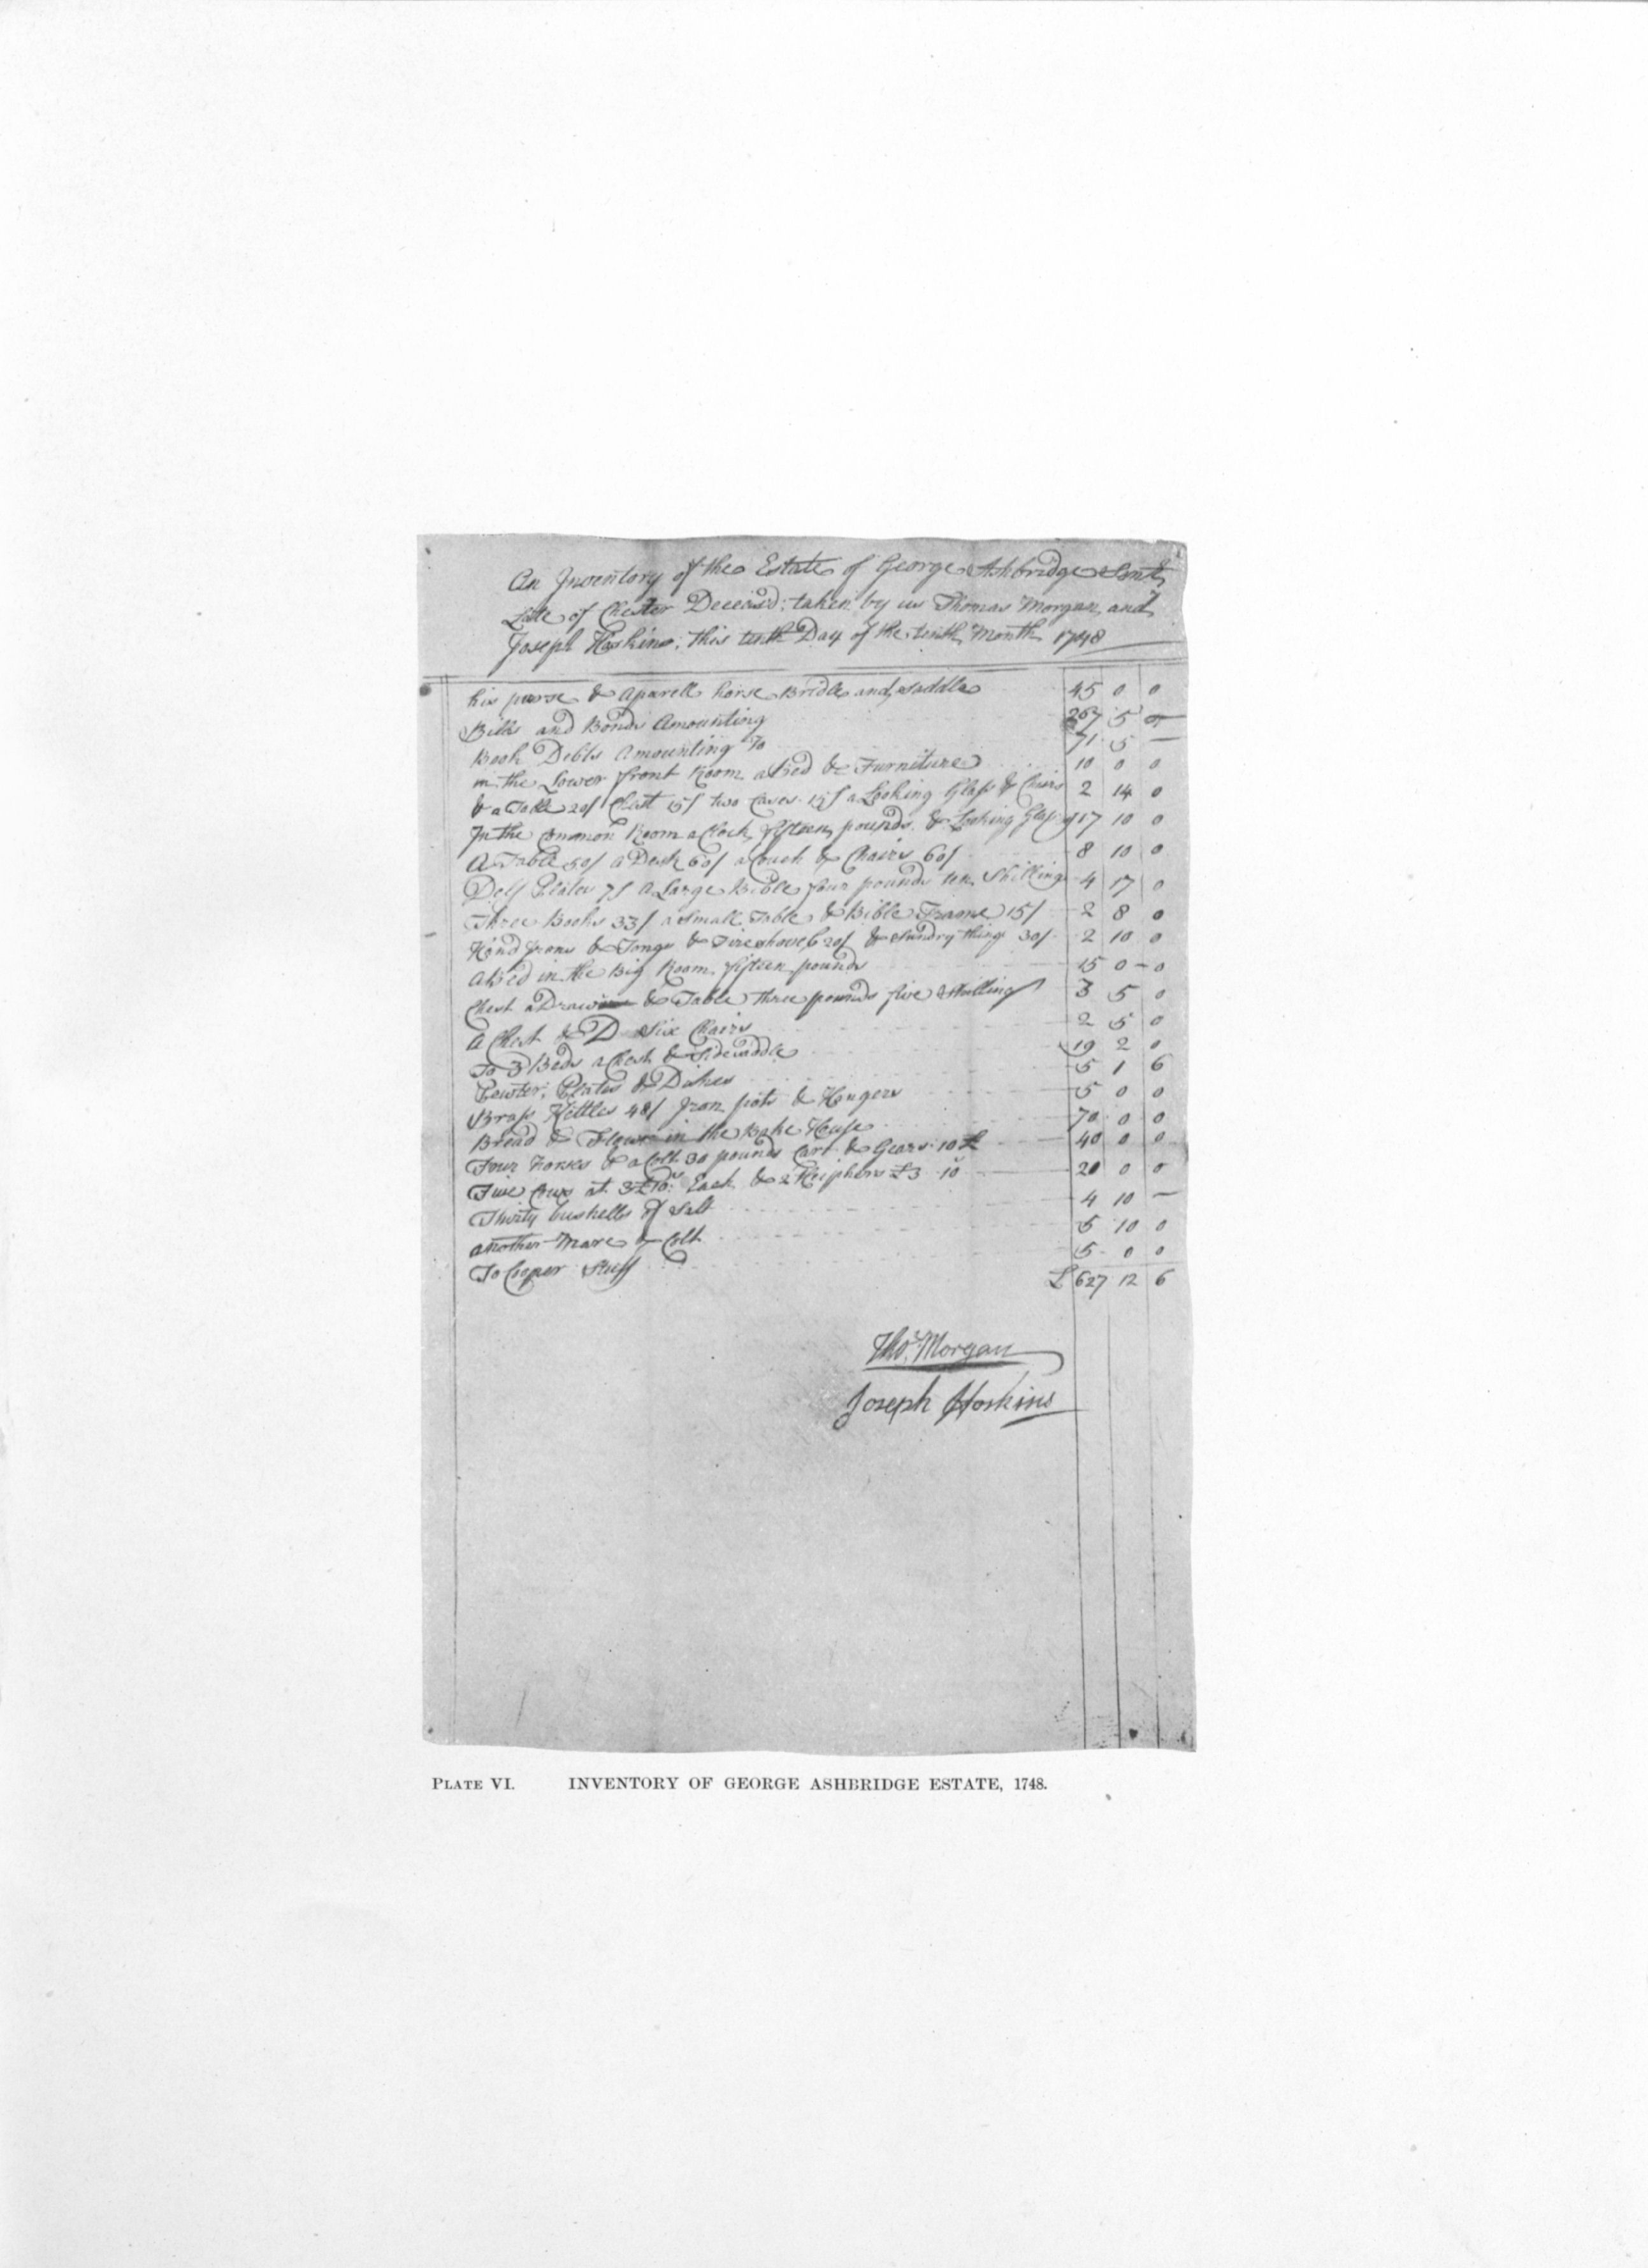 An Inventory of the Estate of George Ashbridge
Late of Chester Deceas'd; taken by us Thomas Morgan, and
Joseph Hoskins; this tenth Day of the tenth Month 1748
his purse & Aparell horse Bridle and Saddle 45 0 0
Bills and Bonds Amounting 267 5 0
Book Debts Amounting To 71 5 —
in the Lower front Room a Bed & Furniture 10 0 0
& a Table 20/ Chest 15/ two Cases 15/ a Looking Glass & Chairs 2 14 0
In the Common Room a Clock fifteen pounds & Looking Glas 17 10 0
A Table 50/ a Desk 60/ a Couch & Chairs 60/ 8 10 0
Delf Plates 7/ A Large Bible four pounds ten Shillings 4 17 0
Three Books 33/ a Small Table & Bible Frame 15/ 2 8 0
Hand Irons & Tongs & Fireshovel 20/ & Sundry things 30/ 2 10 0
A Bed in the Big Room fifteen pounds 15 0 0
Chest a Draw & Table three pounds five Shillings 3 5 0
A Chest & D Six Chairs 2 5 0
To 3 Beds a Chest & Sidesaddle 19 2 0
Pewter; Plates & Dishes 5 1 6
Brass Kettles 48/ Iron pots & Hangers 5 0 0
Bread & Flower in the Bake House 70 0 0
Four horses & a Colt 30 pounds Cart & Gears 10 £ 40 0 0
Five Cows at 3£ 10s Each & 2 Heiphers £3 10 20 0 0
Thirty bushells of Salt 4 10 —
another Mare & Colt 5 10 0
To Cooper Stuff 5 0 0
£ 627 12 6
Thos. Morgan
Joseph Hoskins
PLATE VI. INVENTORY OF GEORGE ASHBRIDGE ESTATE, 1748.